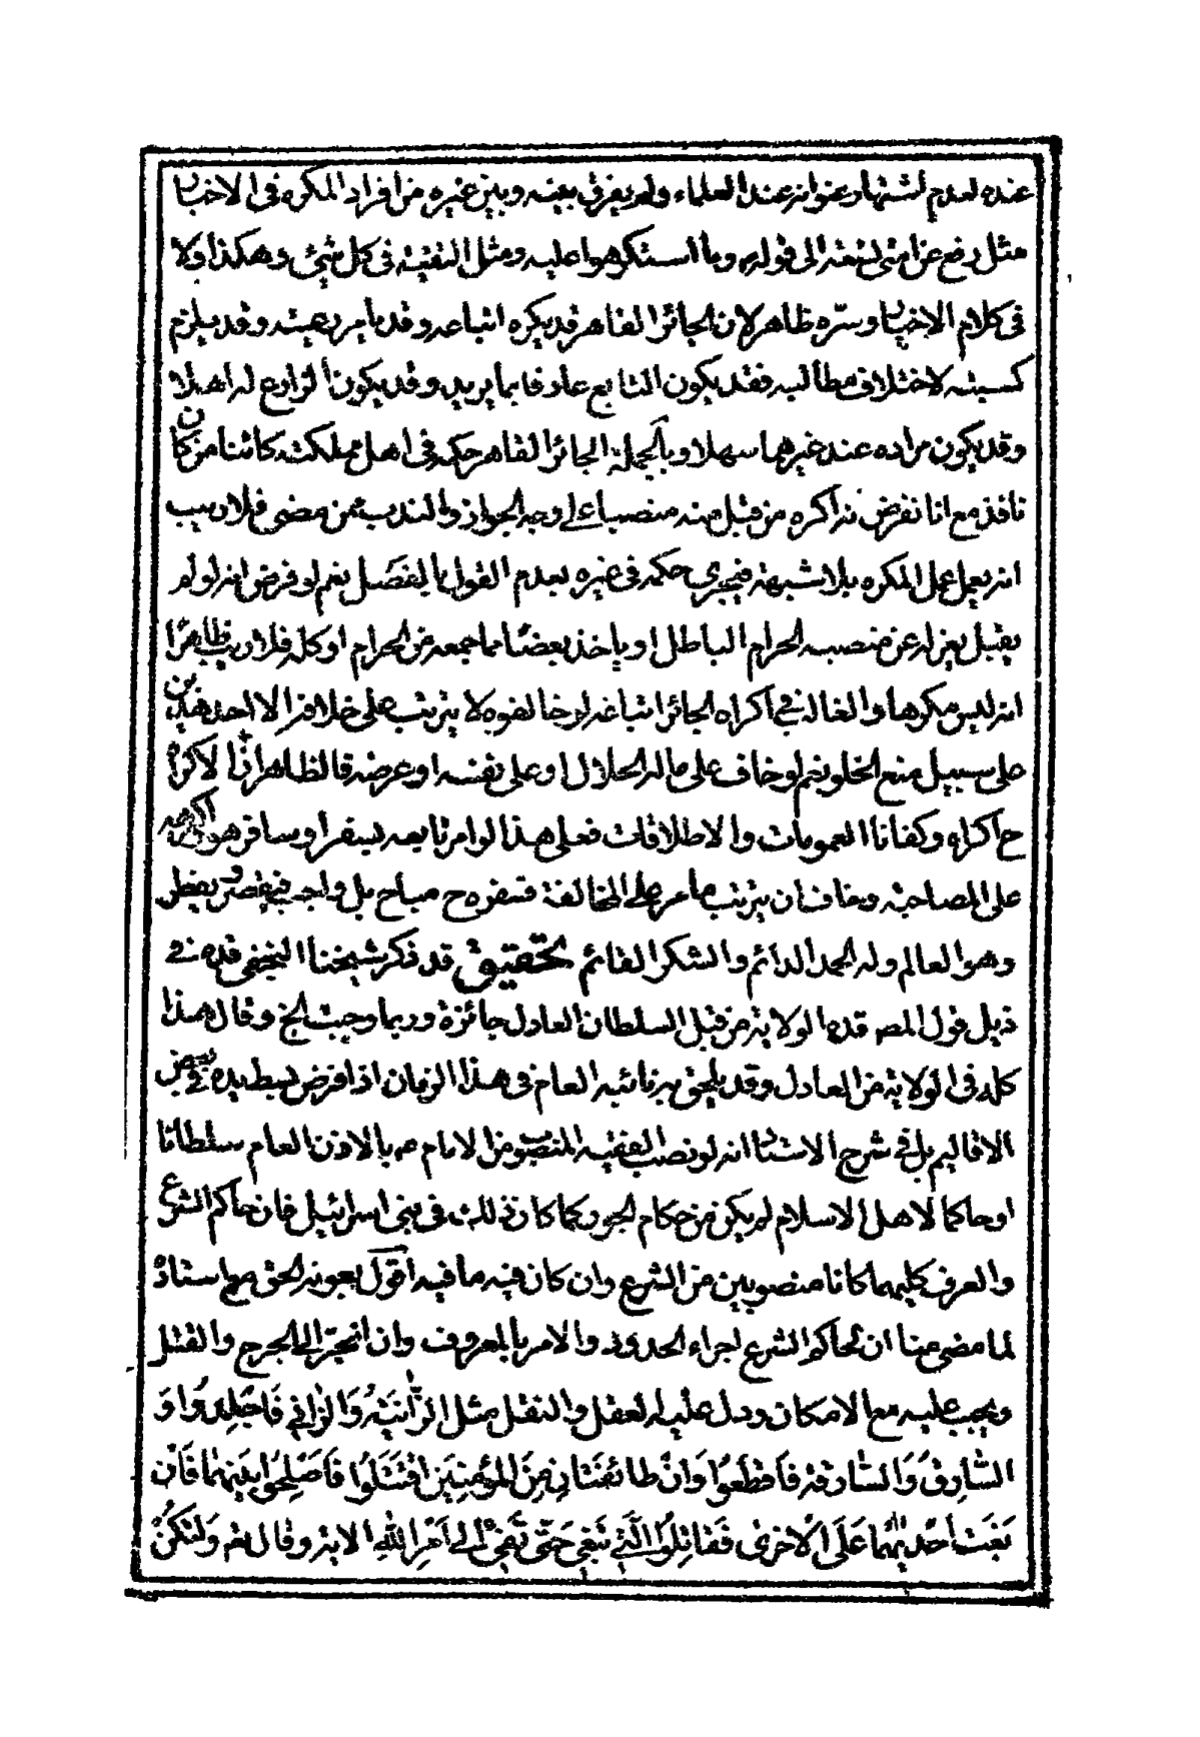 عنده لعدم اشتهار عنوانه عند العلماء ولم يفرق بينه وبين غيره من افراد المكره فى الاخبار
مثل رفع عن امتى تسعة الى قوله وما استكرهوا عليه ومثل التقية فى كل شئ وهكذا ولا
فى كلام الاخيار وسره ظاهر لان الجائر القاهر قد يكره اتباعه وقد يأمر رعيته وقد يلزم
كسبته لاختلاف مطالبه فقد يكون التابع عارفا بما يريد وقد يكون الرادع له اهلا
وقد يكون مراده عند غيرهما سهلا وبالجملة الجائر القاهر حكمه فى اهل مملكته كائنا من كان
نافذ مع انا نفرض انه اكره من قبل منه منصبا على وجه الجواز والندب ممن مضى فلا ريب
انه يعمل عمل المكره بلا شبهة فيجرى حكمه فى غيره بعدم القول بالفصل نعم لو فرض انه لو لم
يقبل يعزله عن منصبه الحرام الباطل او ياخذ بعضا مما جمعه من الحرام او كله فلا ريب ظاهرا
انه ليس مكرها والغالب فى اكراه الجائر اتباعه لو خالفوه لا يترتب على خلافه الا احد هذين
على سبيل منع الخلو نعم لو خاف على ماله الحلال او على نفسه او عرضه فالظاهر ان الاكراه
ح اكراه وكفانا العمومات والاطلاقات فعلى هذا لو امر تابعه بسفر او سافر هو واكرهه
على المصاحبة وخاف ان يترتب ما مر على المخالفة فسفره ح مباح بل واجب فيقصر ويفطر
وهو العالم وله الحمد الدائم والشكر القائم تحقيق قد ذكر شيخنا النجفى قده فى
ذيل قول المص قده الولاية من قبل السلطان العادل جائزة وربما وجبت الخ وقال هذا
كله فى الولاية من العادل وقد يلحق به نائبه العام فى هذا الزمان اذا فرض بسط يده فى بعض
الاقاليم بل فى شرح الاستاد انه لو نصب الفقيه المنصوب من الامام ع بالاذن العام سلطانا
او حاكما لاهل الاسلام لم يكن من حكام الجور كما كان ذلك فى بنى اسرائيل فان حاكم الشرع
والعرف كليهما كانا منصوبين من الشرع وان كان فيه ما فيه اقول بعونه الحق مع استاده
لما مضى عنا ان لحاكم الشرع اجراء الحدود والامر بالمعروف وان انجر الى الجرح والقتل
ويجب عليه مع الامكان ودل عليه العقل والنقل مثل الزَّانِيَةُ وَالزَّانِي فَاجْلِدُوا وَ
السَّارِقُ وَالسَّارِقَةُ فَاقْطَعُوا وَانْ طَائِفَتَانِ مِنَ الْمُؤْمِنِينَ اقْتَتَلُوا فَاَصْلِحُوا بَيْنَهُمَا فَاَنْ
بَغَتْ اَحْدَيٰهُمَا عَلَى الْاُخْرَى فَقَاتِلُوا الَّتِي تَبْغِي حَتَّى تَفِيءَ اِلَى اَمْرِ اللهِ الاية وقال تع وَلْتَكُنْ